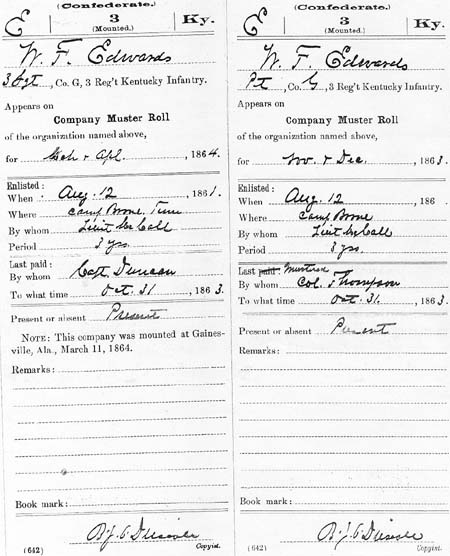 (Confederate.)
E 3 Ky.
(Mounted.)
W. F. Edwards
3 Sgt, Co. G, 3 Reg't Kentucky Infantry.
Appears on
Company Muster Roll
of the organization named above,
for Mch & Apl, 1864.
Enlisted:
When Aug. 12, 1861.
Where Camp Boone Tenn
By whom Lieut
Period 3 yrs.
Last paid:
By whom Capt Duncan
To what time Oct. 31, 1863
Present or absent Present
NOTE: This company was mounted at Gaines-
ville, Ala., March 11, 1864.
Remarks:
Book mark:
Copyist.
(642)
(Confederate.)
E 3 Ky.
(Mounted.)
W. F. Edwards
Pt, Co. G, 3 Reg't Kentucky Infantry.
Appears on
Company Muster Roll
of the organization named above,
for Nov. & Dec., 1863.
Enlisted:
When Aug. 12, 186
Where Camp Boone
By whom Lieut
Period 3 yrs.
Last paid: Mustered
By whom Col. Thompson
To what time Oct. 31., 1863.
Present or absent Present
Remarks:
Book mark:
Copyist.
(642)